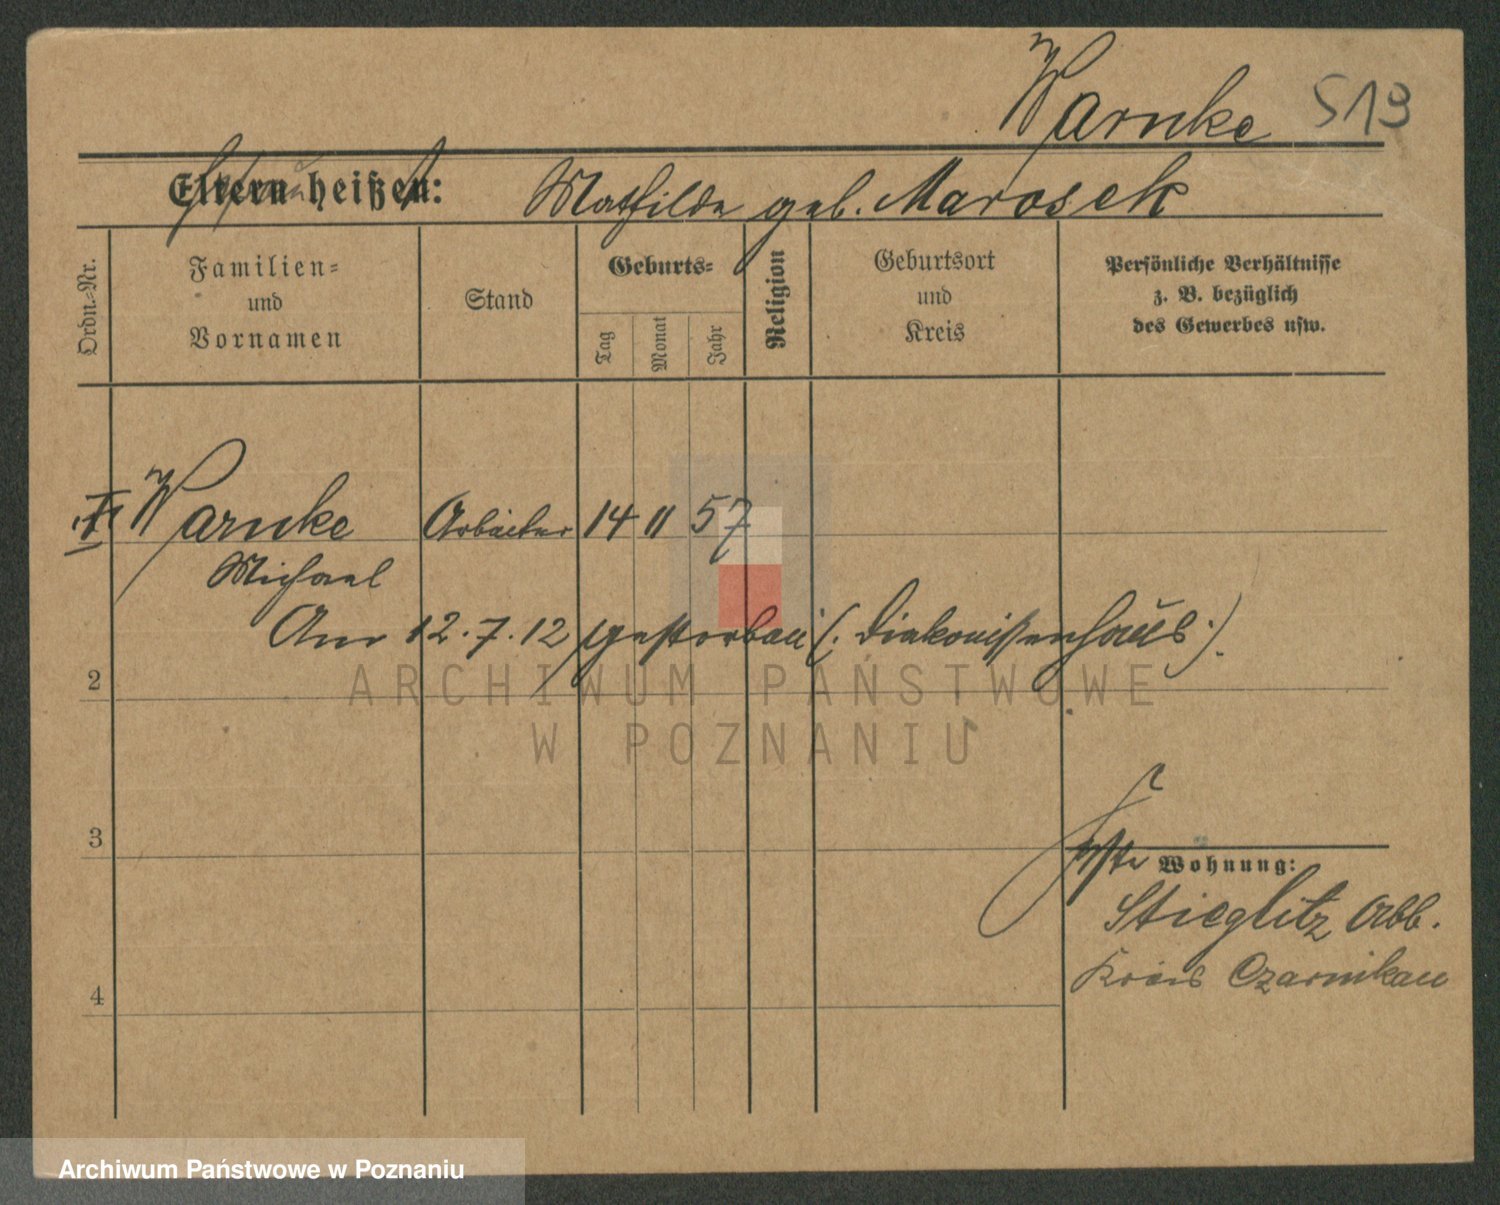 Warnke 519
Eltern heißen: Mathilde geb. Marosek
Ordn.-Nr.
Familien-
und
Vornamen
Stand
Geburts-
Tag
Monat
Jahr
Religion
Geburtsort
und
Kreis
Persönliche Verhältnisse
z. B. bezüglich
des Gewerbes usw.
Warnke Arbeiter 14 11 57
Michael
Am 12.7.12 gestorben (: Diakonissenhaus :)
2
3
Wohnung:
Stieglitz Abb.
4
Kreis Czarnikau
ARCHIWUM PAŃSTWOWE
W POZNANIU
Archiwum Państwowe w Poznaniu